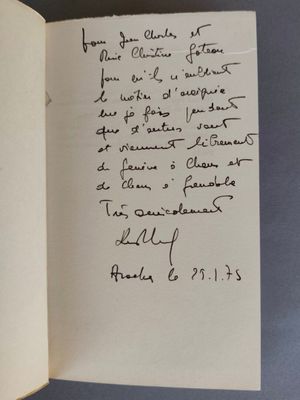 pour Jean Charles et
Anne Christine Gateau
pour qu'ils n'oublient
le métier d'araignée
que je fais pendant
que d'autres vont
et viennent librement
de Genève à Chens et
de Chens à Grenoble
Très amicalement
le 29.1.75